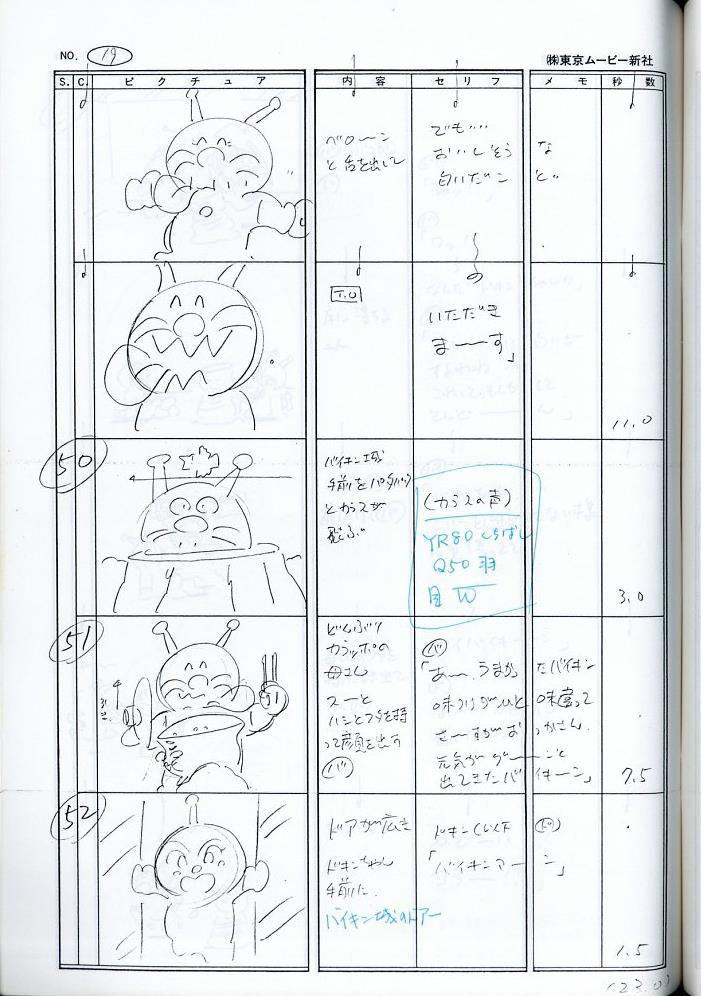 NO. 19
㈱東京ムービー新社
S. C. ピクチュア 内容 セリフ メモ 秒数
ベローン
と舌を出して
でも‥‥
おいしそうな
匂いだこと‥
T.O
の
いただき
ま――す」
11.0
50
バイキン城
手前をパタパタ
とカラスが
飛ぶ
(カラスの声)
YR80 くちばし
Q50 羽
目 W
3.0
51
どんぶり
カラッポの
スーと
ハシとフタを持
って顔を出す
バ
バ
「あ―、うまかったバイキン
さ―すがおっかさん、
元気がグ――ンと
出てきたバイキ―ン」
7.5
52
ドアが広き
ドキンちゃん
手前に、
バイキン城のドアー
ド
「バイキンマ――ン」
1.5